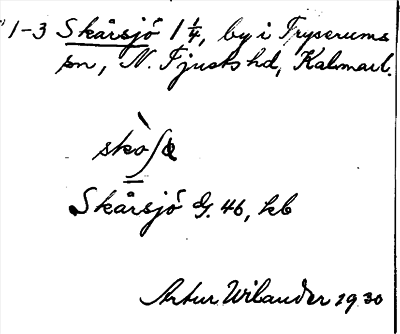 1-3 Skårsjö 1 1/4, by i Tryserums
sn, N. Tjusts hd, Kalmar l.
Skårsjö G. 46, kb
Artur Wilander 1930